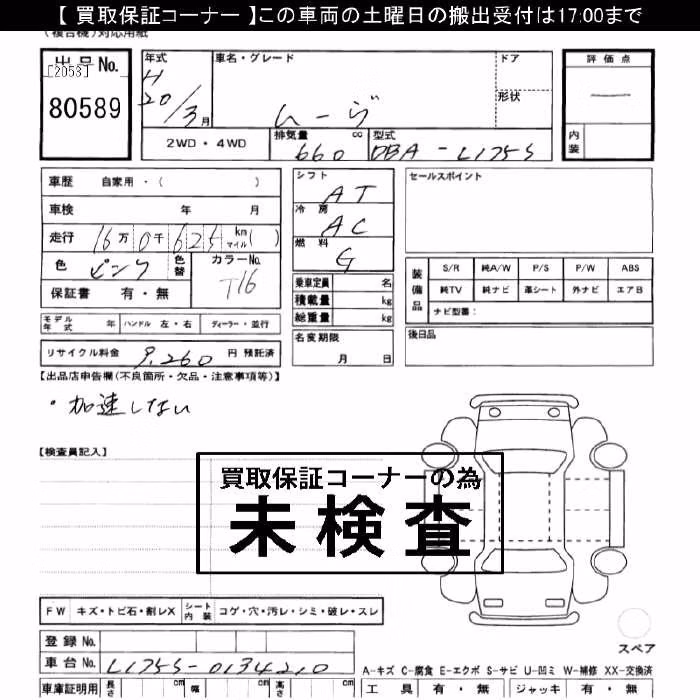 【 買取保証コーナー 】この車両の土曜日の搬出受付は17:00まで
(複合機)対応用紙
出品No. 年式 車名・グレード ドア 評価点
[2053] H
80589 20/3月 ムーヴ 形状
2WD・4WD 排気量 cc 型式 内装
660 DBA-L175S
車歴 自家用・( ) シフト AT セールスポイント
車検 年 月 冷房 AC
走行 16万0千625 km マイル ( ) 燃料 G
色 ピンク 色替 カラーNo. T16 装備品 S/R 純A/W P/S P/W ABS
保証書 有・無 乗車定員 名 純TV 純ナビ 革シート 外ナビ エアB
積載量 kg ナビ型番:
モデル年式 年 ハンドル 左・右 ディーラー・並行 総重量 kg
リサイクル料金 9,260 円 預託済 名変期限 月 日 後日品
【出品店申告欄(不良箇所・欠品・注意事項等)】
・加速しない
【検査員記入】
買取保証コーナーの為
未検査
FW キズ・トビ石・割レX シート内装 コゲ・穴・汚レ・シミ・破レ・スレ
登録No. スペア
車台No. L175S-0134210 A-キズ C-腐食 E-エクボ S-サビ U-凹ミ W-補修 XX-交換済
車庫証明用 長さ cm 幅 cm 高さ cm 工具 有・無 ジャッキ 有・無